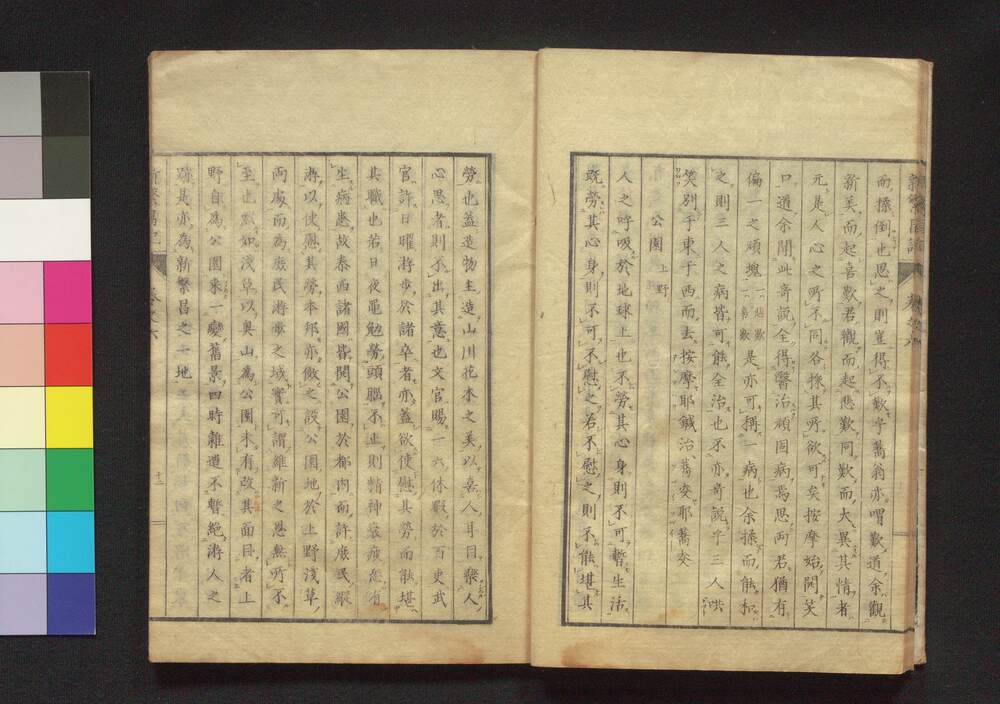 而揉倒也思之則豈得不歎乎蕎翁亦喟歎道余觀
新美而起喜歎君觀而起悲歎同歎而大異其情者
元是人心之所不同各揉其所欲可矣按摩始開笑
口道余聞此奇說全得醫治頑固病焉思両君猶有
偏一之頑塊是亦可稱一病也余揉而能和
之則三人之病皆可能全治也不亦奇說乎三人哄
笑別于東于西而去按摩耶鍼治蕎麥耶蕎麥
公園 上野
人之呼吸於地球上也不勞其心身則不可暫生活
既勞其心身則不可不慰之若不慰之則不能堪其
勞也蓋造物主造山川花木之美以喜人耳目樂人
心思者則不出其意也文官賜一六休暇於百吏武
官許日曜游步於諸卒者亦蓋欲使慰其勞而能堪
其職也若日夜黽勉勞頭腦不止則精神衰疲忽有
生病患故泰西諸國皆開公園於都內而許庶民縱
游以使慰其勞本邦亦倣之設公園地於上野淺草
両處而為庶民游歌之域實可謂維新之恩無所不
至也然如淺草以奧山為公園未有改其面目者上
野自為公園來一變舊景四時雜遝不暫絕游人之
跡是亦為新繁昌之一地